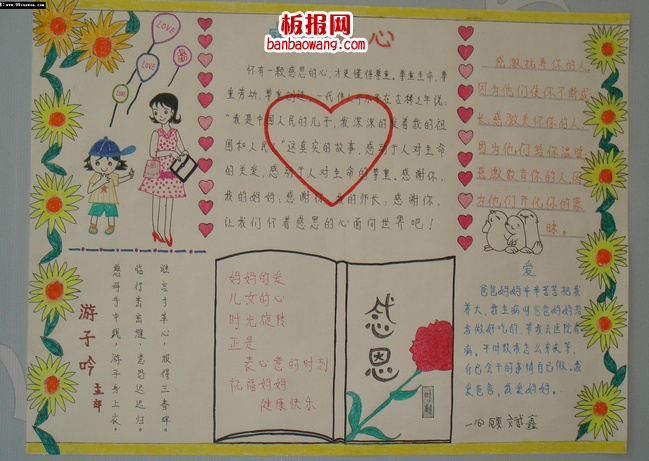 www.99zuowen.com
板报网
banbaowang.com
心
LOVE
LOVE
LOVE
怀有一颗感恩的心，才更懂得尊重。尊重生命、尊
重劳动、尊重创造。一代伟人邓小平在古稀之年说：
“我是中国人民的儿子，我深深的爱着我的祖
国和人民。”这真实的故事，感动于人对生命
的关爱，感动于人对生命的尊重。感谢你，
我的妈妈；感谢你，我的师长；感谢你，
让我们怀着感恩的心面向世界吧！
感激抚养你的人，
因为他们使你不断成
长感激关怀你的人，
因为他们给你温暖
感激教育你的人，因
为他们开化你的蒙
昧。
游子吟
孟郊
慈母手中线，游子身上衣。
临行密密缝，意恐迟迟归。
谁言寸草心，报得三春晖。
妈妈的爱
儿女的心
时光旋转
正是
表心意的时刻
祝福妈妈
健康快乐
感恩
时刻
爱
爸爸妈妈辛辛苦苦把我
养大，我生病时爸爸妈妈想
着做好吃的，带我去医院看
病。
自己会干的事情自己做。我
爱爸爸，我爱妈妈。